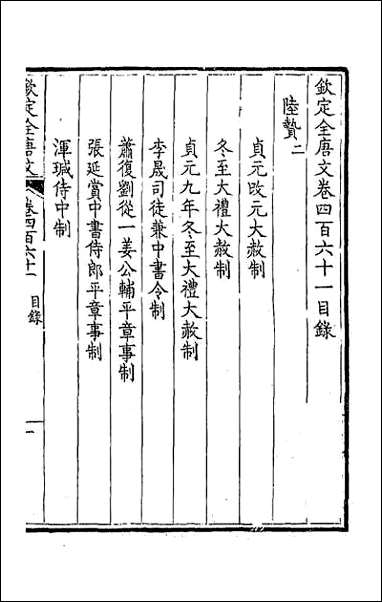 欽定全唐文卷四百六十一目錄
陸贄二
貞元改元大赦制
冬至大禮大赦制
貞元九年冬至大禮大赦制
李晟司徒兼中書令制
蕭復劉從一姜公輔平章事制
張延賞中書侍郎平章事制
渾瑊侍中制
欽定全唐文
卷四百六十一
目錄
一